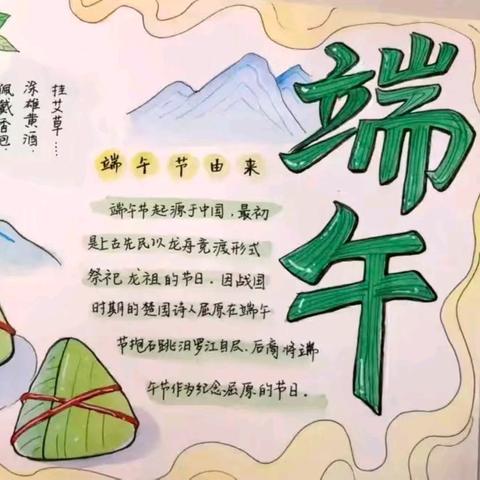 端午
端午节由来
端午节起源于中国，最初
是上古先民以龙舟竞渡形式
祭祀龙祖的节日。因战国
时期的楚国诗人屈原在端午
节抱石跳汨罗江自尽，后商将端
午节作为纪念屈原的节日。
佩戴香包.
涂雄黄酒.
挂艾草……